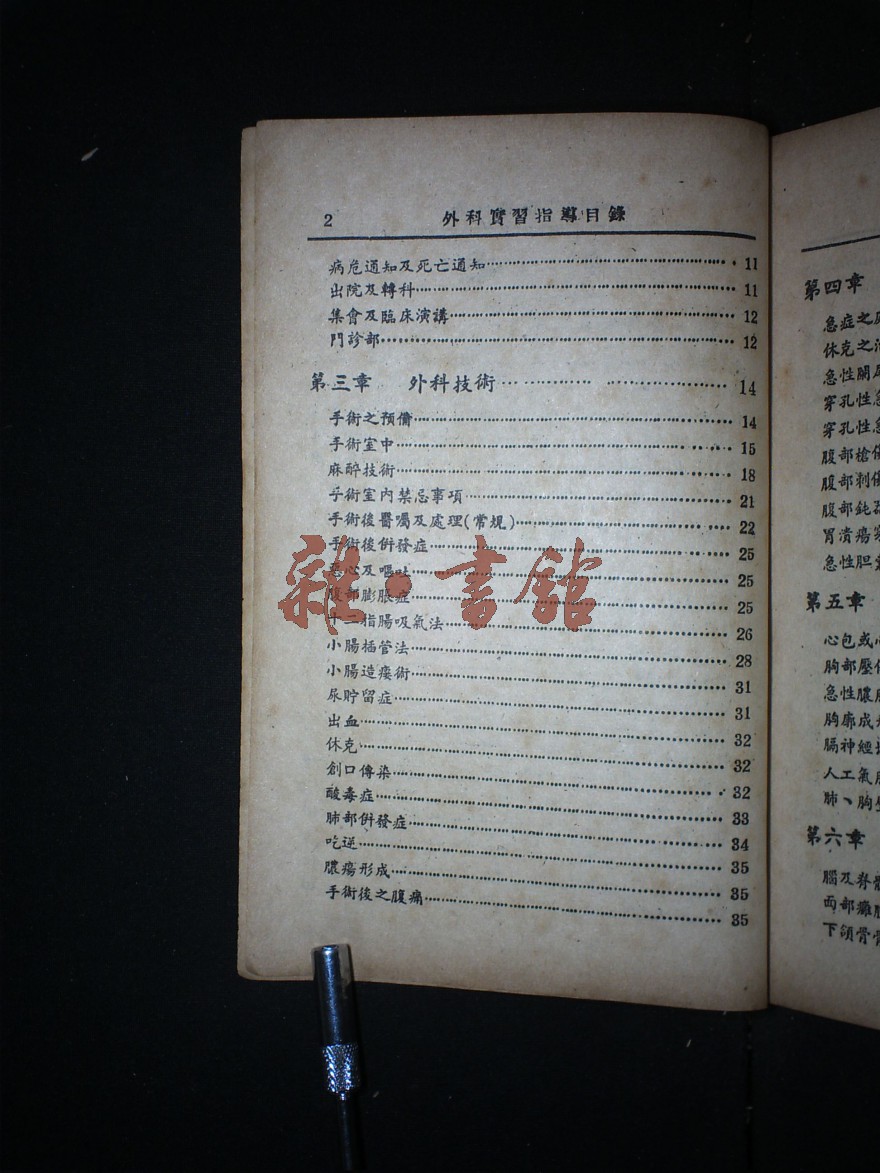 2 外科實習指導目錄
病危通知及死亡通知 11
出院及轉科 11
集會及臨床演講 12
門診部 12
第三章 外科技術 14
手術之預備 14
手術室中 15
麻醉技術 18
手術室內禁忌事項 21
手術後醫囑及處理(常規) 22
手術後併發症 25
惡心及嘔吐 25
腹部膨脹症 25
十二指腸吸氣法 26
小腸插管法 28
小腸造瘻術 31
尿貯留症 31
出血 32
休克 32
創口傳染 32
酸毒症 33
肺部併發症 34
吃逆 35
膿瘍形成 35
手術後之腹痛 35
雜·書館
第四章
急症之
休克之
急性闌尾
穿孔性急
穿孔性急
腹部槍傷
腹部刺傷
腹部鈍
胃潰瘍穿
急性胆囊
第五章
心包或心
胸部壓
急性膿
胸廓成
膈神經
人工氣
肺、胸
第六章
腦及脊
面部
下頜骨